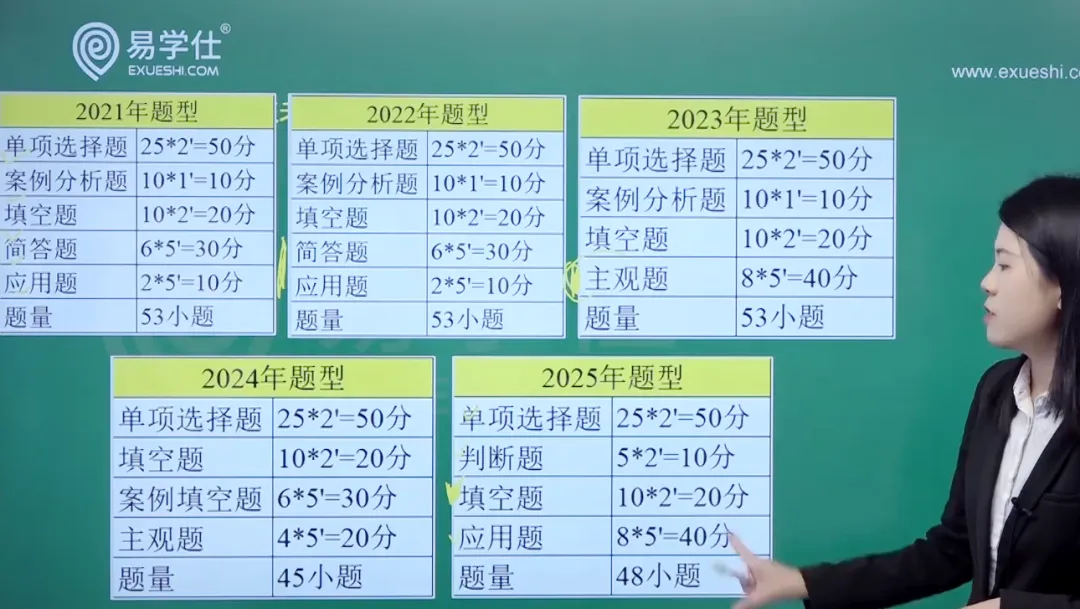 易学仕®
EXUESHI.COM
www.exueshi.co
2021年题型
单项选择题 25*2'=50分
案例分析题 10*1'=10分
填空题 10*2'=20分
简答题 6*5'=30分
应用题 2*5'=10分
题量 53小题
2022年题型
单项选择题 25*2'=50分
案例分析题 10*1'=10分
填空题 10*2'=20分
简答题 6*5'=30分
应用题 2*5'=10分
题量 53小题
2023年题型
单项选择题 25*2'=50分
案例分析题 10*1'=10分
填空题 10*2'=20分
主观题 8*5'=40分
题量 53小题
2024年题型
单项选择题 25*2'=50分
填空题 10*2'=20分
案例填空题 6*5'=30分
主观题 4*5'=20分
题量 45小题
2025年题型
单项选择题 25*2'=50分
判断题 5*2'=10分
填空题 10*2'=20分
应用题 8*5'=40分
题量 48小题